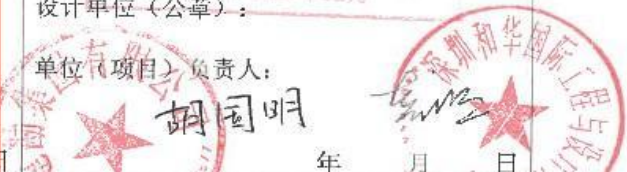 设计单位（公章）：
单位（项目）负责人：
胡国明
年 月 日
集团有限公司
深圳和华国际工程与设计